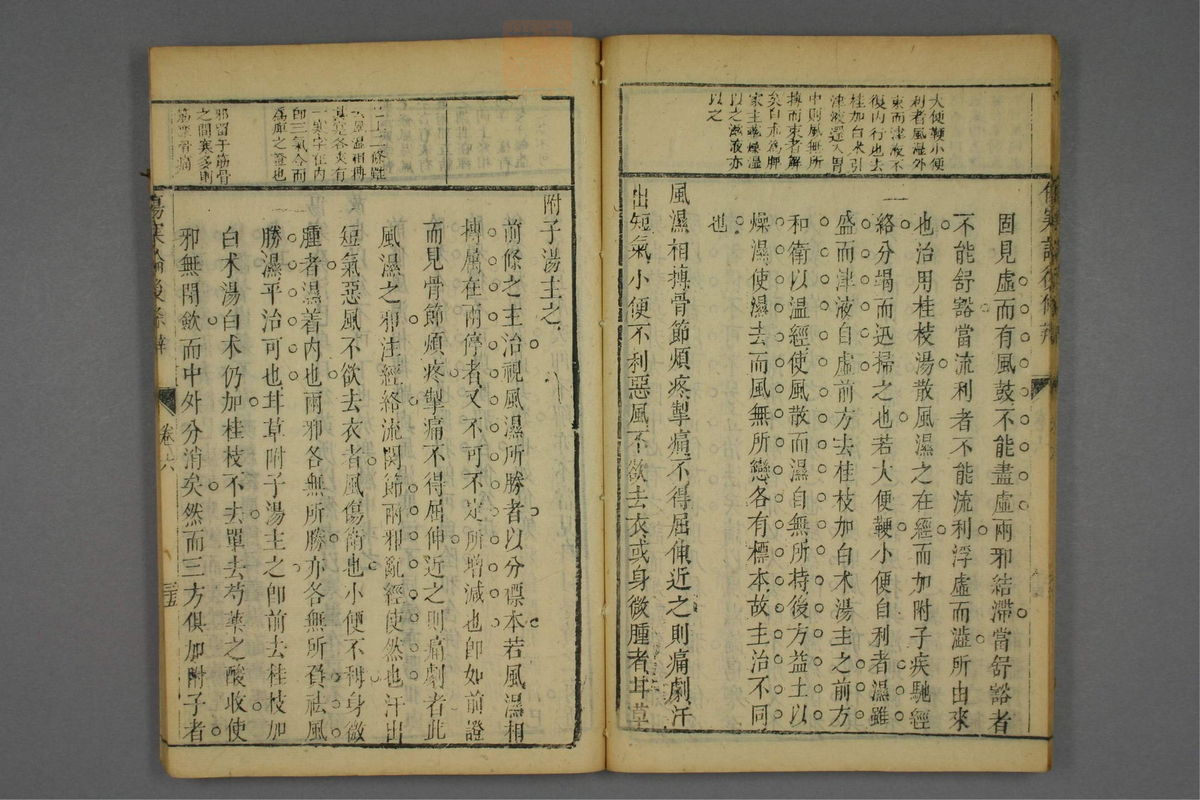 大便鞕小便
利者風濕外
束而津液不
復內行也去
桂加白朮引
津液還入胃
中則風無所
搏而束者解
矣白朮為脾
家主藥燥濕
以之滋液亦
以之
傷寒論後條辨
固見虛而有風鼓不能盡虛兩邪結滯當舒豁者
不能舒豁當流利者不能流利浮虛而澁所由來
也治用桂枝湯散風濕之在經而加附子疾馳經
絡分竭而迅掃之也若大便鞕小便自利者濕雖
盛而津液自虛前方去桂枝加白朮湯主之前方
和衛以溫經使風散而濕自無所持後方益土以
燥濕使濕去而風無所戀各有標本故主治不同
也
風濕相搏骨節煩疼掣痛不得屈伸近之則痛劇汗
出短氣小便不利惡風不欲去衣或身微腫者甘草
附子湯主之
前條之主治視風濕所勝者以分標本若風濕相
搏屬在兩停者又不可不定所增減也即如前證
而見骨節煩疼掣痛不得屈伸近之則痛劇者此
風濕之邪注經絡流關節兩邪亂經使然也汗出
短氣惡風不欲去衣者風傷衛也小便不利身微
腫者濕着內也兩邪各無所勝亦各無所負祛風
勝濕平治可也甘草附子湯主之即前去桂枝加
白朮湯白朮仍加桂枝不去單去芍藥之酸收使
邪無閉歛而中外分消矣然而三方俱加附子者
已上二條雖
云風濕相搏
其寔各夾有
一寒字在內
即三氣合而
為痺之證也
邪留于筋骨
之間寒多則
筋攣骨痛
傷寒論後條辨
卷六
三五